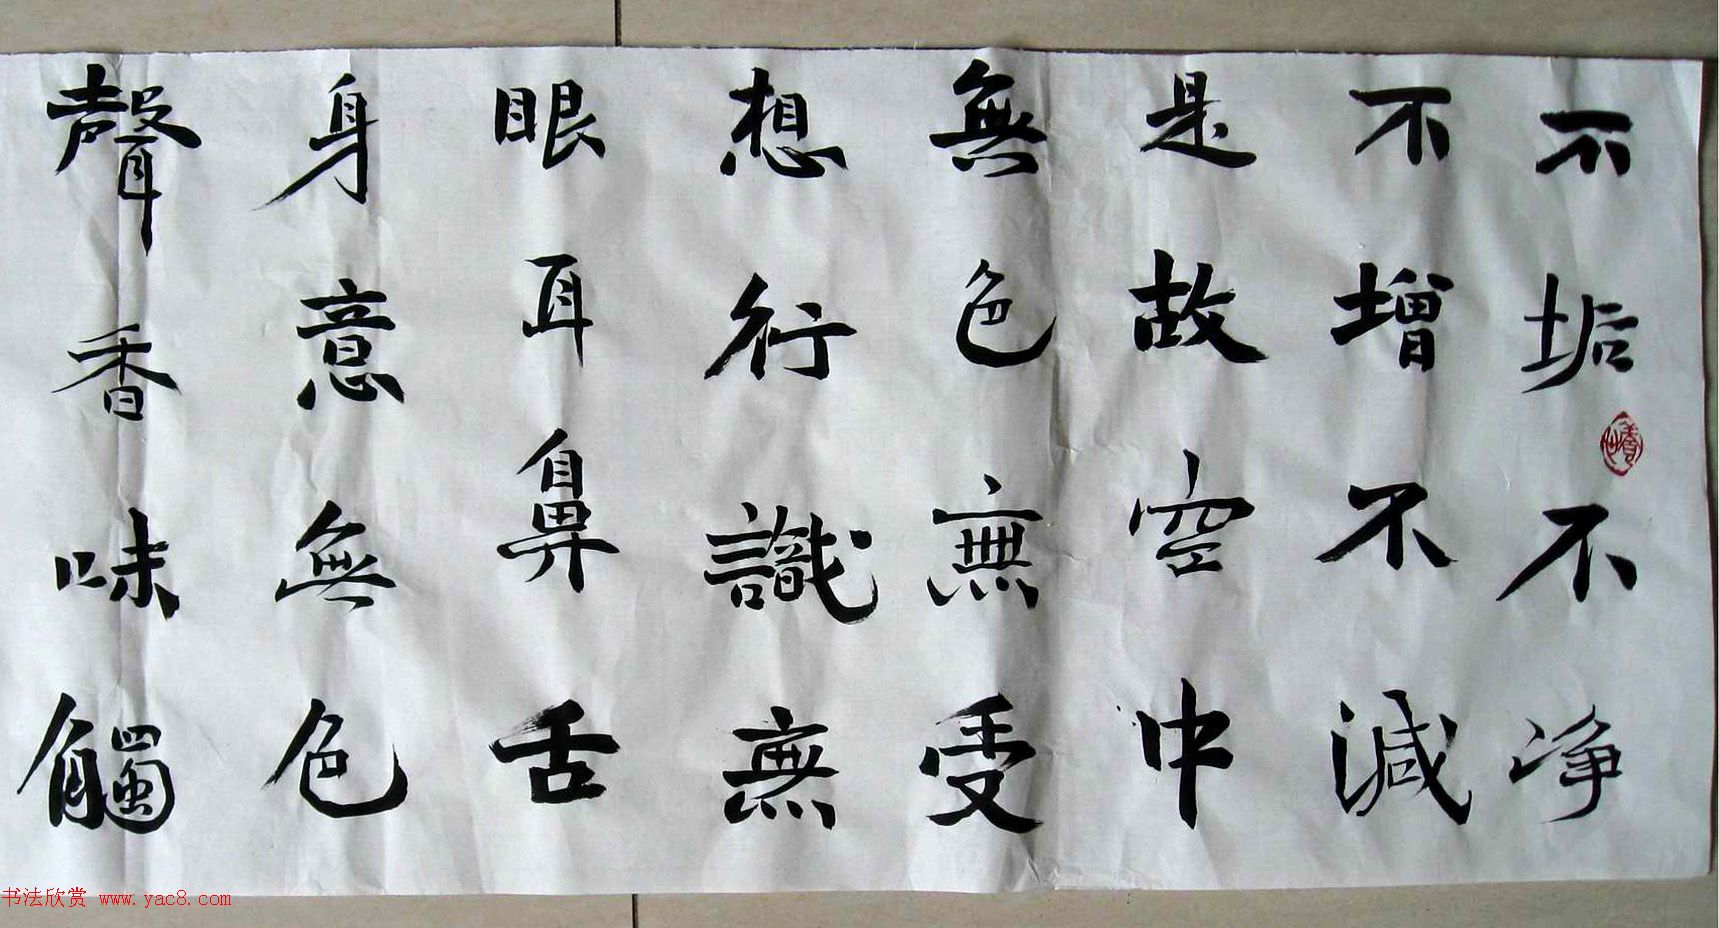 不垢不净
不增不減
是故空中
無色無受
想行識無
眼耳鼻舌
身意無色
聲香味觸
书法欣赏 www.yac8.com